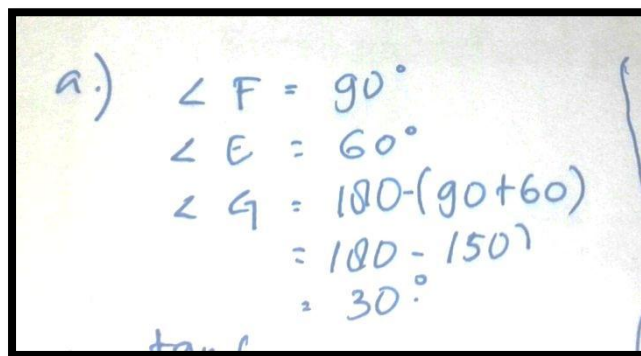 a.) ∠ F = 90°
∠ E = 60°
∠ G = 180-(90+60)
= 180 - 150)
= 30°.